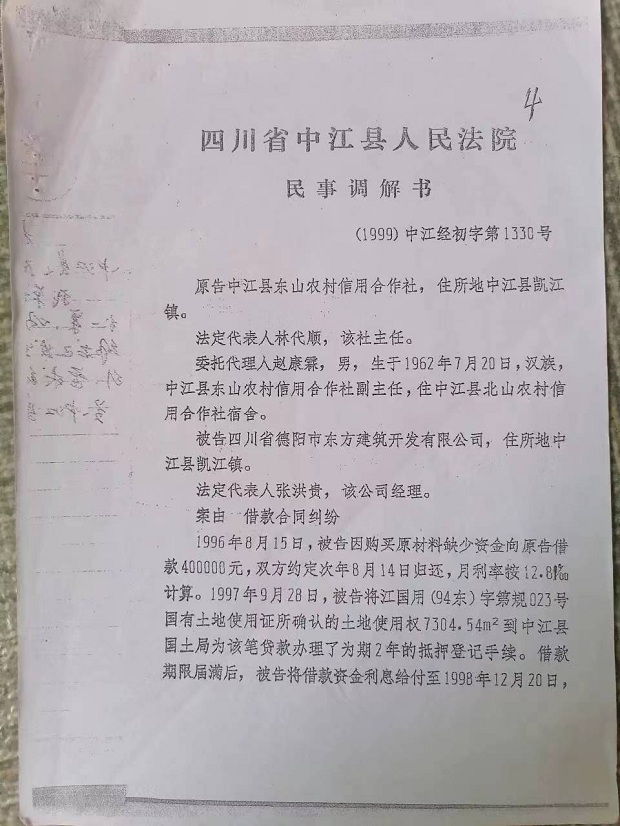 4
四川省中江县人民法院
民事调解书
(1999)中江经初字第1330号
原告中江县东山农村信用合作社，住所地中江县凯江
镇。
法定代表人林代顺，该社主任。
委托代理人赵康霖，男，生于1962年7月20日，汉族，
中江县东山农村信用合作社副主任，住中江县北山农村信
用合作社宿舍。
被告四川省德阳市东方建筑开发有限公司，住所地中
江县凯江镇。
法定代表人张洪贵，该公司经理。
案由 借款合同纠纷
1996年8月15日，被告因购买原材料缺少资金向原告借
款400000元，双方约定次年8月14日归还，月利率按12.8‰
计算。1997年9月28日，被告将江国用(94东)字第规023号
国有土地使用证所确认的土地使用权7304.54m²到中江县
国土局为该笔贷款办理了为期2年的抵押登记手续。借款
期限届满后，被告将借款资金利息给付至1998年12月20日，